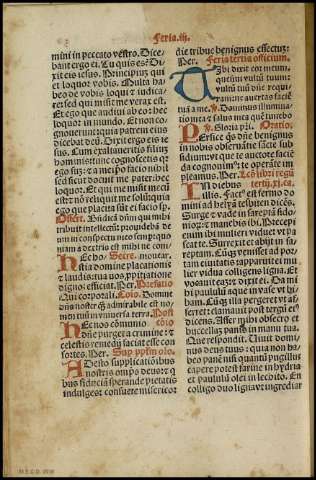 Feria.iij.
mini in peccato vestro. Dice-
bant ergo ei. Tu quis es? Di-
xit eis iesus. Principiuz qui
et loquor vobis. Multa ha-
beo de vobis loqui et iudica-
re: sed qui misit me verax est.
Et ego que audiui ab eo: hec
loquor in mundo. Et non co-
gnouerunt quia patrem eius
dicebat deū. Dixit ergo eis ie-
sus. Cum exaltaueritis filium
hominis: tunc cognoscetis qr
ego suz: et a meipso facio nihil
sed sicut docuit me pater: hec
loquor. Et qui me misit mecū
est: et nō reliquit me solū: quia
ego que placita sūt ei facio sp.
Offert. Bñdicā dñm qui mihi
tribuit intellectū: prouidebā de-
um in conspectu meo semper: quo-
niam a dextris est mihi ne com-
Hec do.
stia domine placationē
et laudis: tua nos ꝓpitiatione
dignos efficiat. Per. Prefatio
Qui corporali. Cōio. Domine
dñs noster q̄ admirabile est no-
men tuū in vniuersa terra. Post
Hec nos cōmunio cōio
dñe purget a crimine: et
celestis remedij faciat esse con-
sortes. Per. Sup ppłm oro.
Adesto supplicationibus
nostris omps deus: et
quibus fiduciā sperande pietatis
indulges: consuete misericor-
die tribue benignus effectuz:
Per. Feria tertia officium.
Tibi dixit cor meum,
quesiui vultū tuum:
vultū tuū dñe requi-
ram: ne auertas faciē
tuā a me. p̄. Dominus illumina-
tio mea et salus mea quē timebo
v. Gloria pri. Oratio.
Perfice q̄s dñe benignus in
nobis obseruātie sācte sub-
sidium: vt que te auctore faciē-
da cognouimꝰ: te operāte im-
pleamus. Per. Lcō libri regū
In diebus tertij.xi.ca.
illis. Factꝰ est sermo do-
mini ad heliā thesbitē dicēs.
Surge et vade in sarepta sido-
nioꝝ: et manebis ibi. Precepi
enim ibi mulieri vidue vt pa-
scat te. Surrexit et abijt in sa-
reptam. Cūqz venisset ad por-
tam ciuitatis: apparuit ei mu-
lier vidua colligens ligna. Et
vocauit eaz: dixitqz ei. Da mi-
hi paululū aque in vase vt bi-
bam. Cūqz illa pergeret vt af-
ferret: clamauit post tergū eiꝰ
dicens. Affer mihi obsecro et
buccellaz panis in manu tua.
Que respondit. Uiuit domi-
nus deus tuus: quia non ha-
beo panē nisi quantū pugillus
capere potest farine in hydria
et paululū olei in lechito. En
colligo duo ligna: vt ingrediar